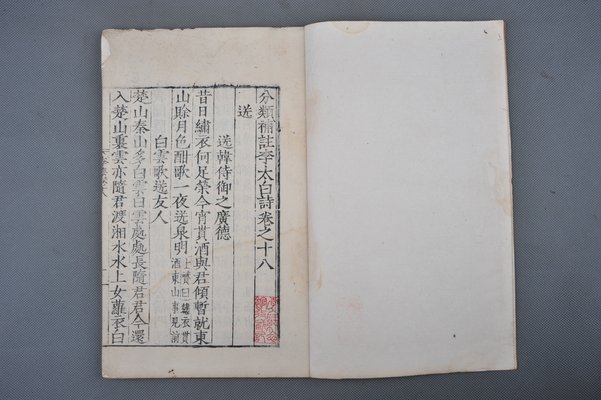 分類補註李太白詩卷之十八
送
送韓侍御之廣德
昔日繡衣何足榮今宵貰酒與君傾暫就東
山賒月色酣歌一夜送泉明
士贇曰繡衣貰
酒東山事見前
白雲歌送友人
楚山秦山多白雲白雲處處長隨君君今還
入楚山裏雲亦隨君渡湘水水上女蘿衣白